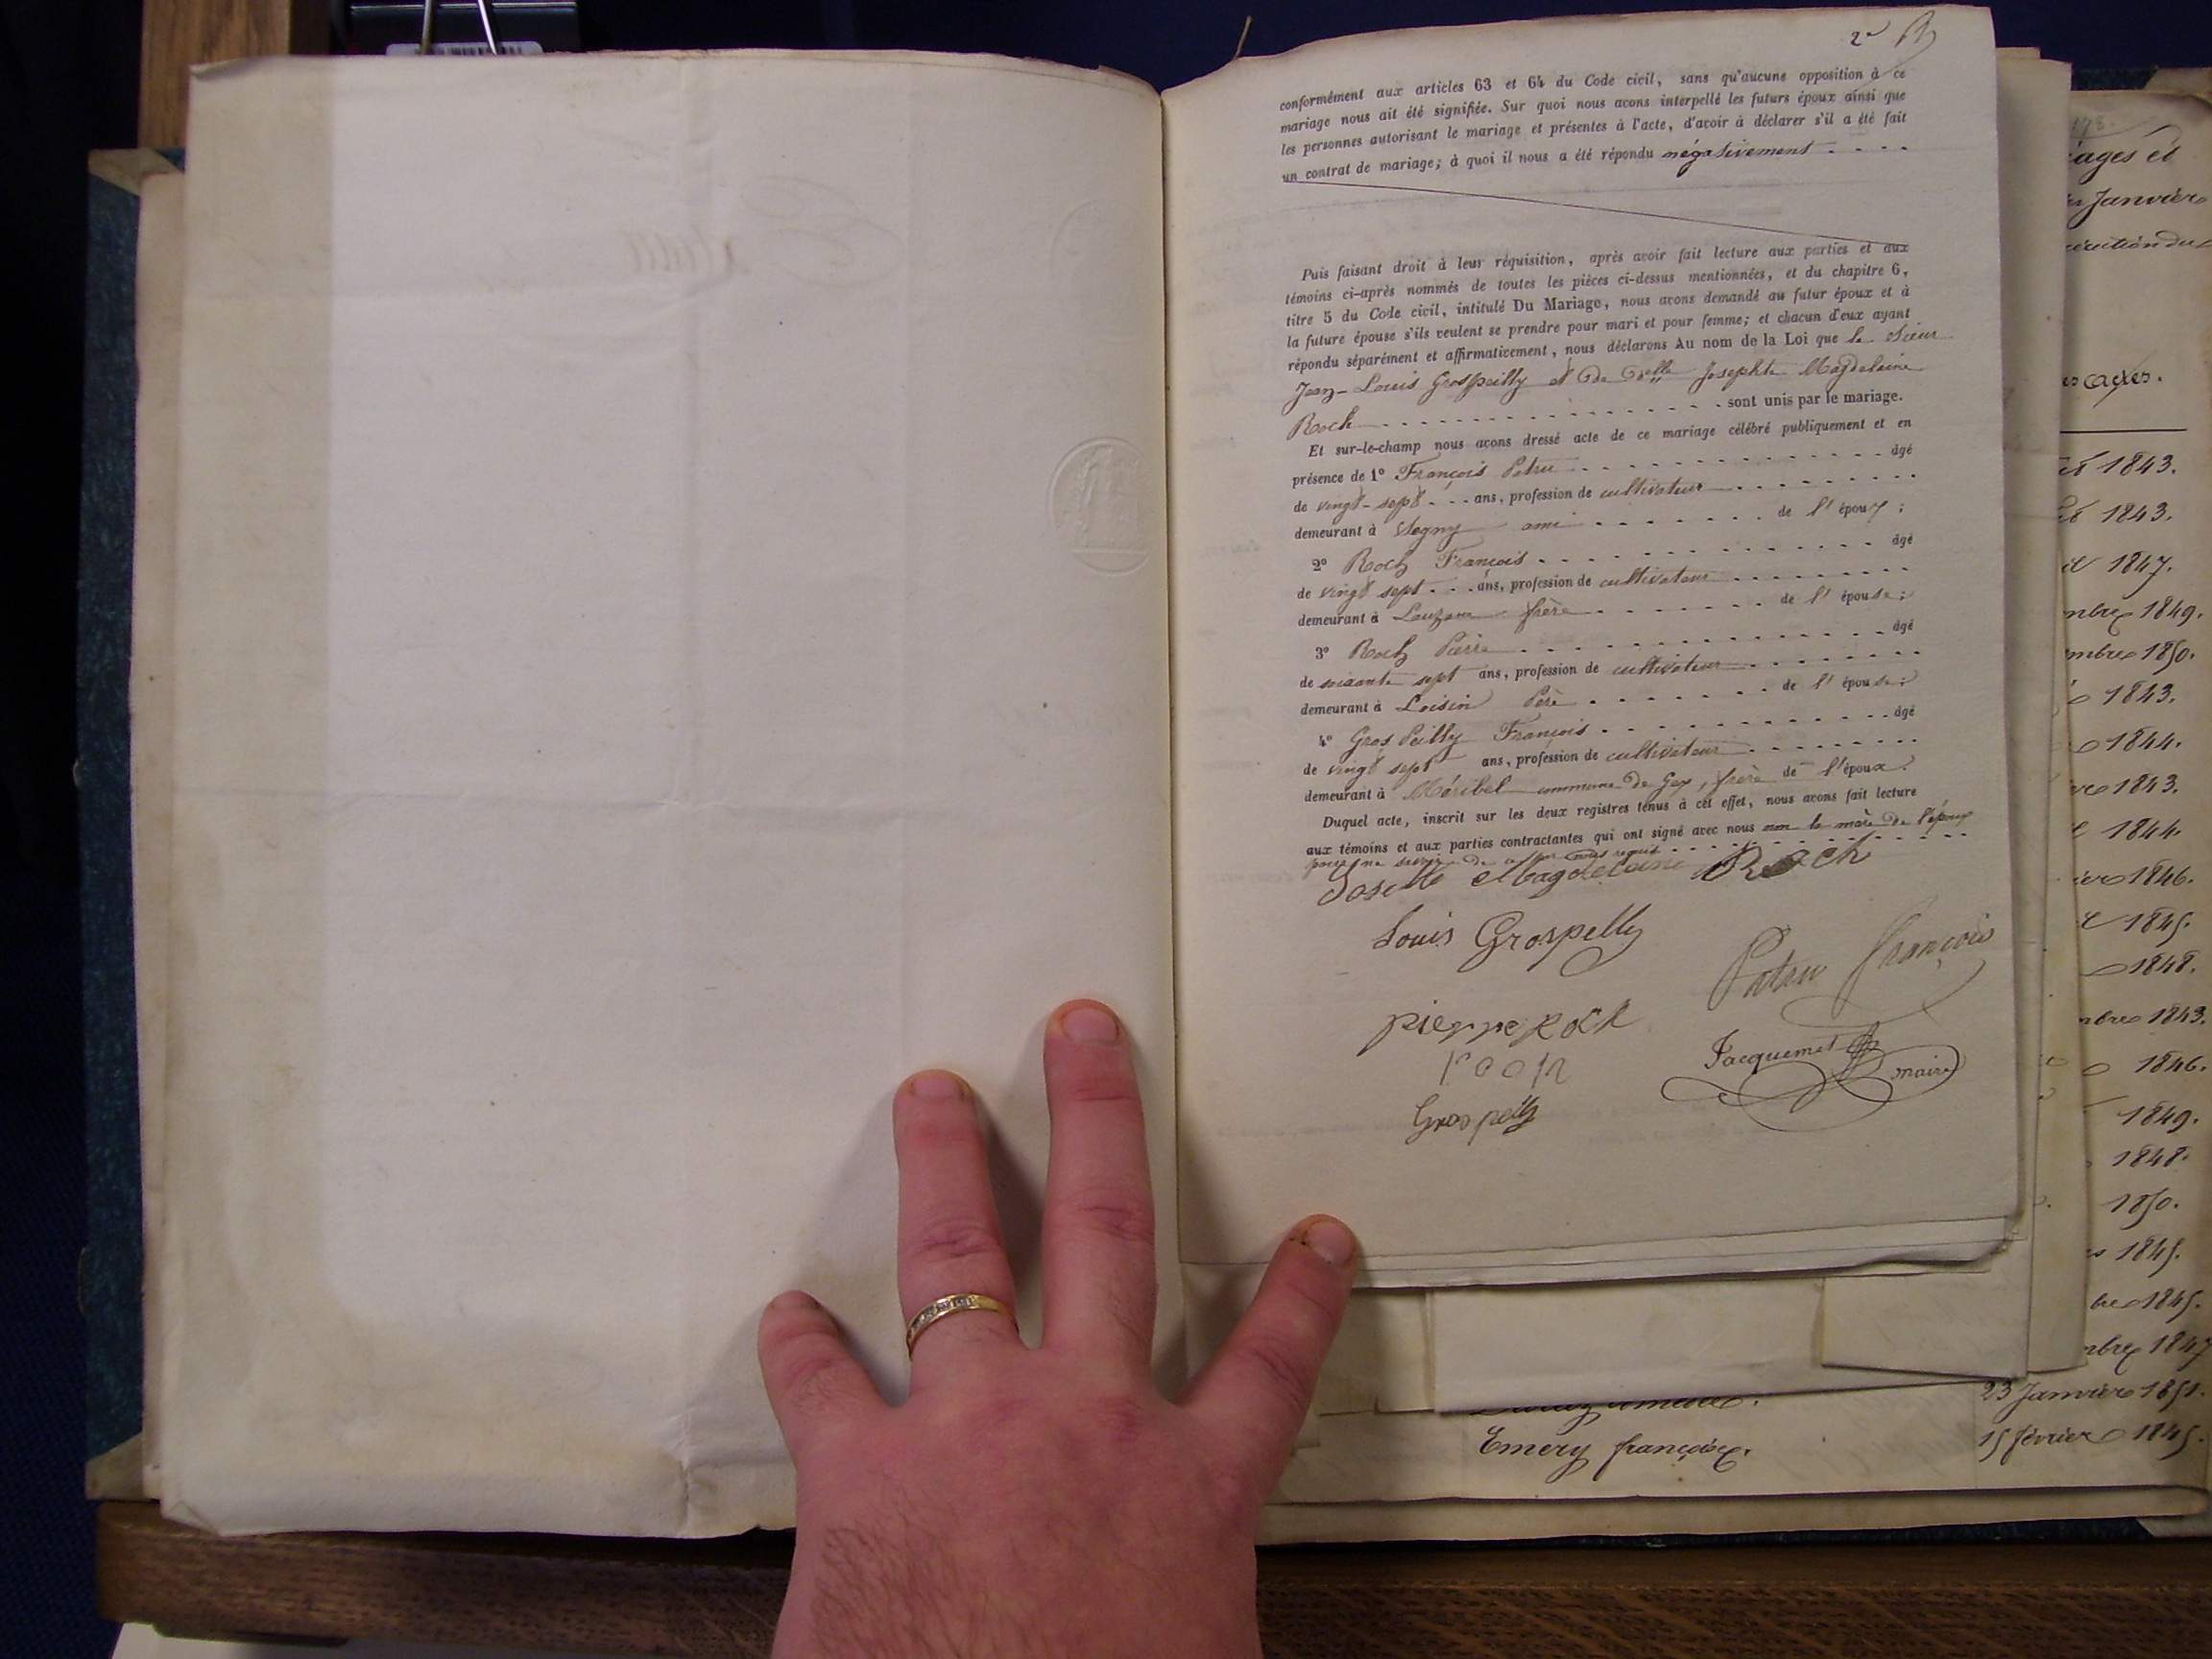 2e
conformément aux articles 63 et 64 du Code civil, sans qu'aucune opposition à ce
mariage nous ait été signifiée. Sur quoi nous avons interpellé les futurs époux ainsi que
les personnes autorisant le mariage et présentes à l'acte, d'avoir à déclarer s'il a été fait
un contrat de mariage; à quoi il nous a été répondu négativement . . . .
Puis faisant droit à leur réquisition, après avoir fait lecture aux parties et aux
témoins ci-après nommés de toutes les pièces ci-dessus mentionnées, et du chapitre 6,
titre 5 du Code civil, intitulé Du Mariage, nous avons demandé au futur époux et à
la future épouse s'ils veulent se prendre pour mari et pour femme; et chacun d'eux ayant
répondu séparément et affirmativement, nous déclarons Au nom de la Loi que le Sieur
Jean-Louis Grospeilly et de Delle Josephte Magdelaine
Roch . . . . sont unis par le mariage.
Et sur-le-champ nous avons dressé acte de ce mariage célébré publiquement et en
présence de 1° François Patru . . . . âgé
de vingt-sept . . . ans, profession de cultivateur . . . .
demeurant à Segny ami . . . . de l'époux;
2° Roch François . . . . âgé
de vingt sept . . . ans, profession de cultivateur . . . .
demeurant à frère . . . . de l'épouse;
3° Roch Pierre . . . . âgé
de soixante sept ans, profession de cultivateur . . . .
demeurant à Loisin Père . . . . de l'épouse;
4° Gros Peilly François . . . . âgé
de vingt sept ans, profession de cultivateur . . . .
demeurant à Máribel commune de Gex, frère de l'époux.
Duquel acte, inscrit sur les deux registres tenus à cet effet, nous avons fait lecture
aux témoins et aux parties contractantes qui ont signé avec nous non la mère de l'époux
pour ne savoir de ce par nous requis . . . .
Josette Magdelaine Roch
Louis Grospelly
Patru François
pierre roch
roch
Jacquemet
maire
Grospelly
178.
iages et
Janvier
es actes.
1843.
1843.
1847.
mbre 1849.
mbre 1850.
1843.
1844.
1843.
1844.
1846.
1845.
1848.
mbre 1843.
1846.
1849.
1848.
1850.
1845.
bre 1845.
mbre 1847
23 Janvier 1851.
Emery françoise.
15 février 1845.